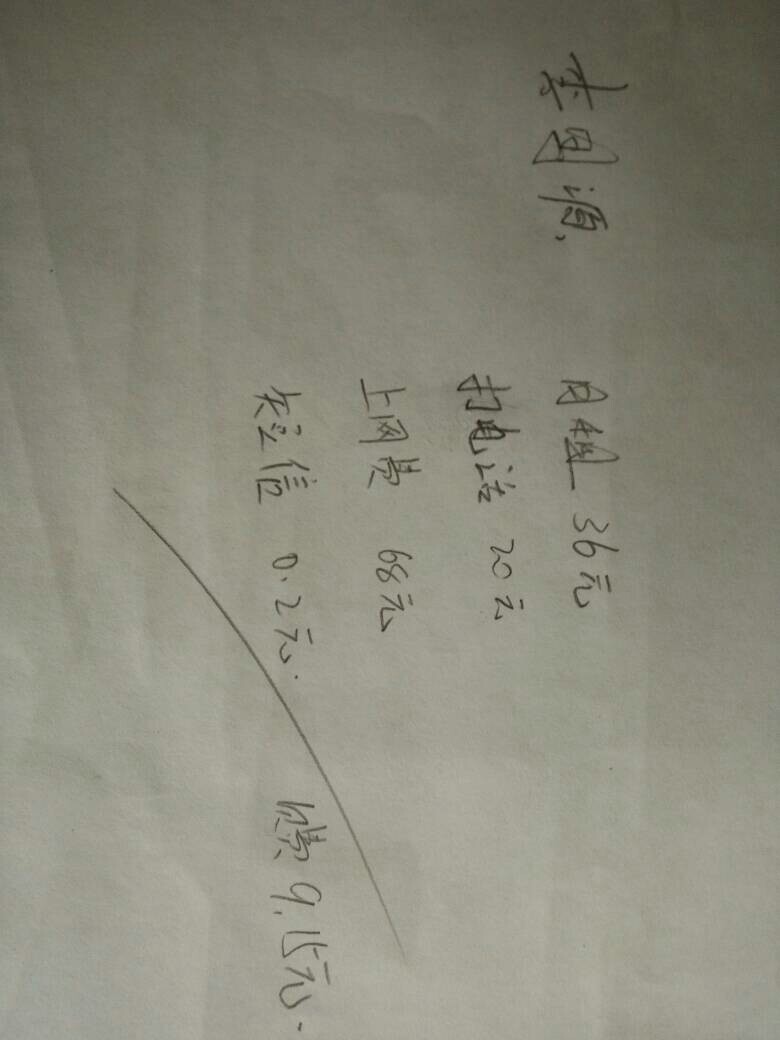 月租 36元
打电话 20元
上网费 68元
短信 0.2元.
费 9.15元.